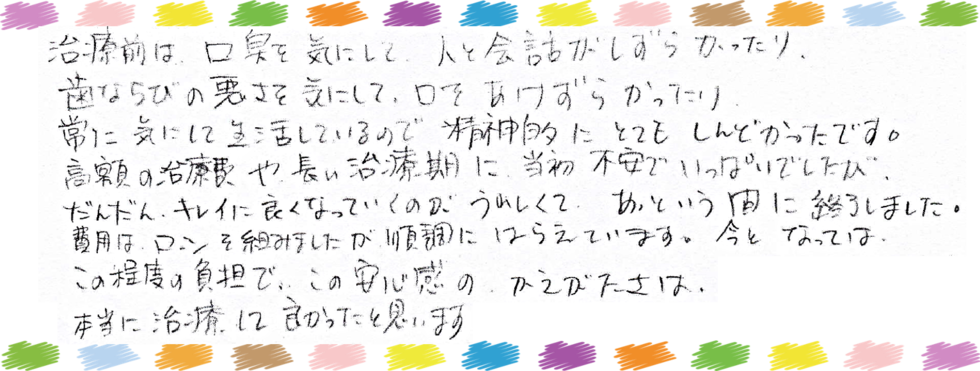 治療前は、口臭を気にして、人と会話がしずらかったり、
歯ならびの悪さを気にして、口をあけずらかったり、
常に気にして生活しているので精神的にとてもしんどかったです。
高額の治療費や長い治療期に、当初不安でいっぱいでしたが、
だんだん、キレイに良くなっていくのが、うれしくて、あっという間に終了しました。
費用は、ローンを組みましたが順調にはらえています。今となっては、
この程度の負担で、この安心感の、かえがたさは、
本当に治療して良かったと思います